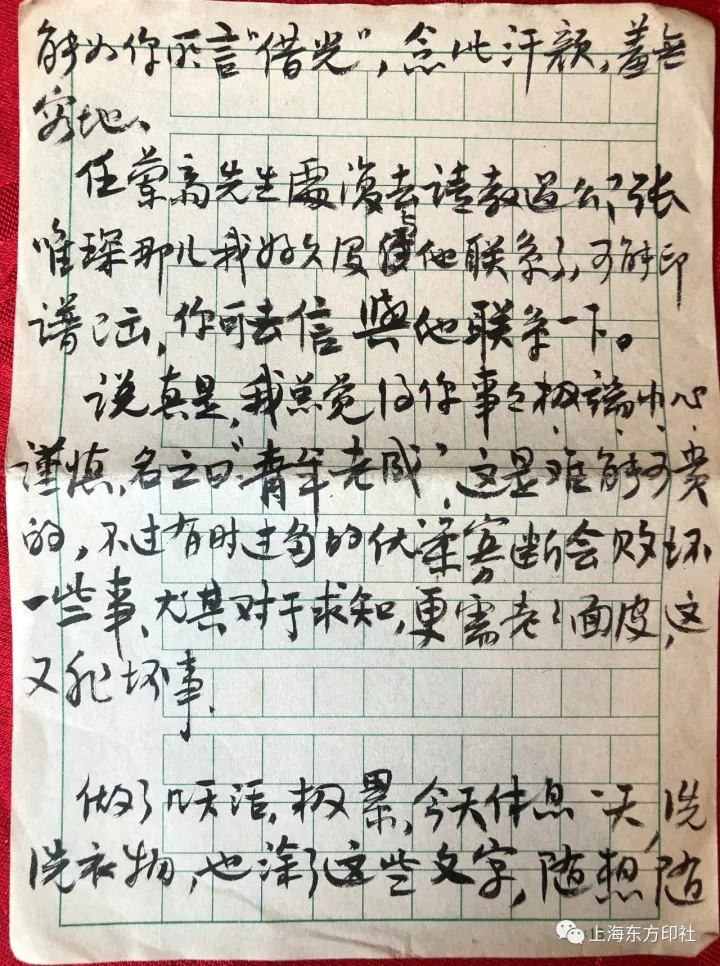 能如你所言"借光",念此汗颜,羞無
容地、
任蘭高先生處没去请教过公,张
唯琛那儿我好久没與他联系了,可能印
谱已出,你可去信與他联系一下。
说真是,我总觉得你事々极端小心
谨慎,名之曰"青年老成",这是难能可贵
的,不过有时过多的优柔寡断会败坏
一些事、尤其对于求知,更需老々面皮,这
又非坏事.
做了几天活,极累,今天休息一天,洗
洗衣物,也涂了这些文字,随想随
上海东方印社